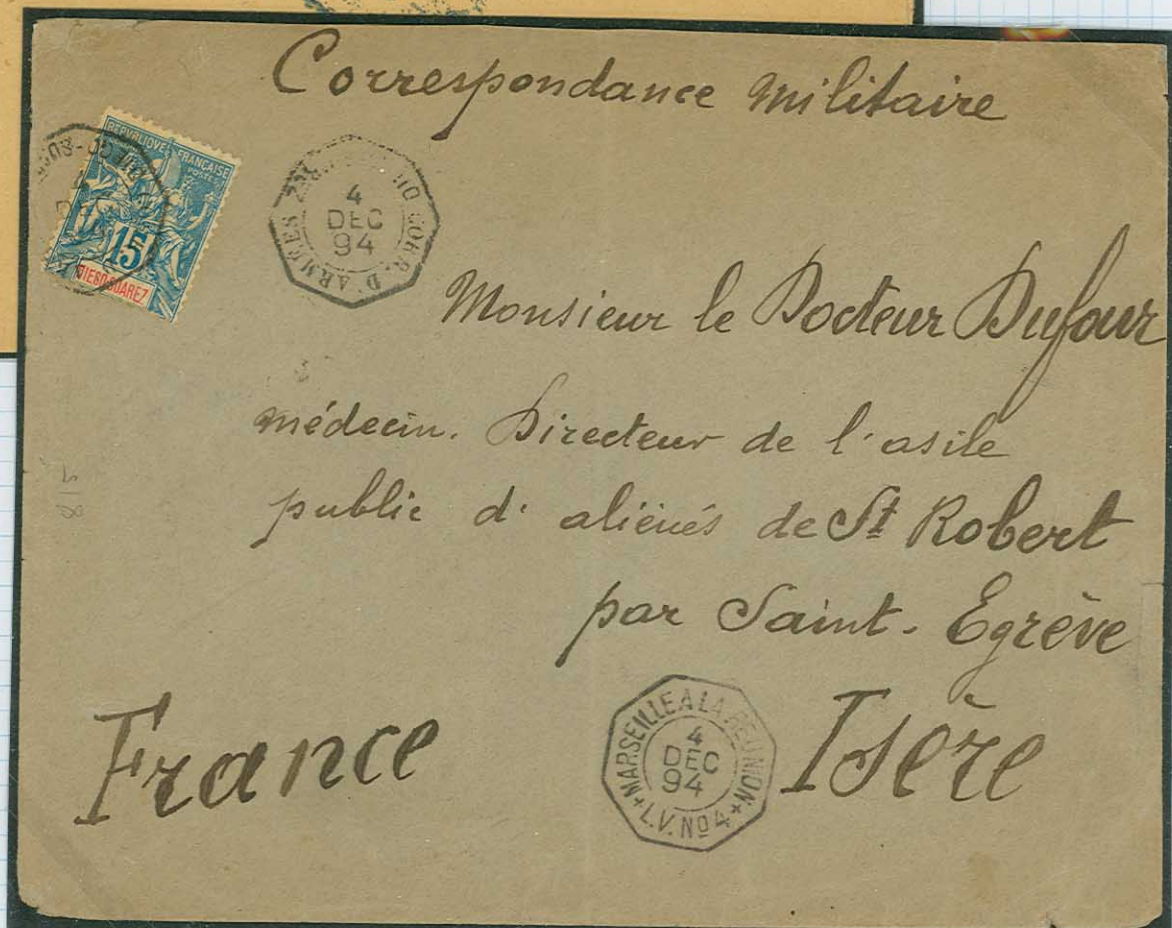 Correspondance Militaire
REPVBLIQVE FRANÇAISE
POSTES
15
DIEGO SUAREZ
4
DEC
94
CORR. D'ARMEES
Monsieur le Docteur Dufour
médecin. Directeur de l'asile
public d'aliénés de St Robert
par Saint-Egrève
Isère
France
MARSEILLE A LA REUNION
4
DEC
94
L.V. No 4
815